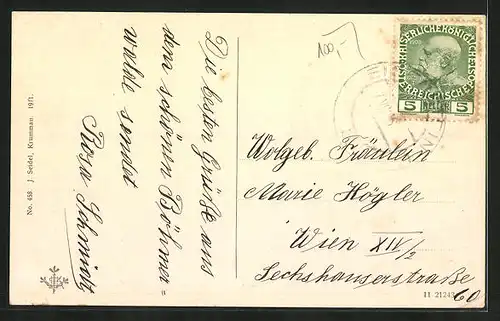 Die besten Grüße aus
dem schönen Böhmer=
walde sendet
Rosa Schmidt
No. 458 J. Seidel, Krummau. 1911.
100,-
KAISERLICHE KÖNIGLICHE
ÖSTERREICHISCHE
5 HELLER 5
Wolgeb. Fräulein
Marie Högler
Wien XIV/2
Sechshauserstraße
60
11 21243